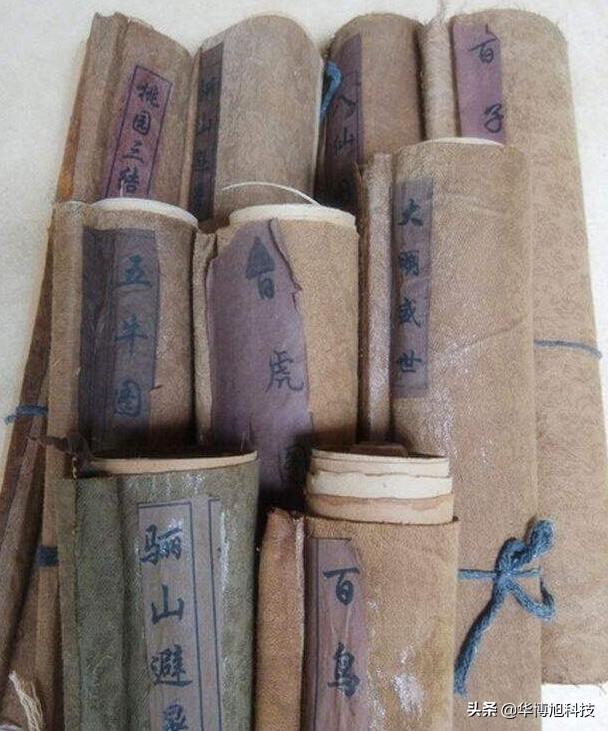 桃园三结
山避暑
八仙
百子
五牛图
百虎
大明盛世
骊山避
百鸟
头条 @华博旭科技